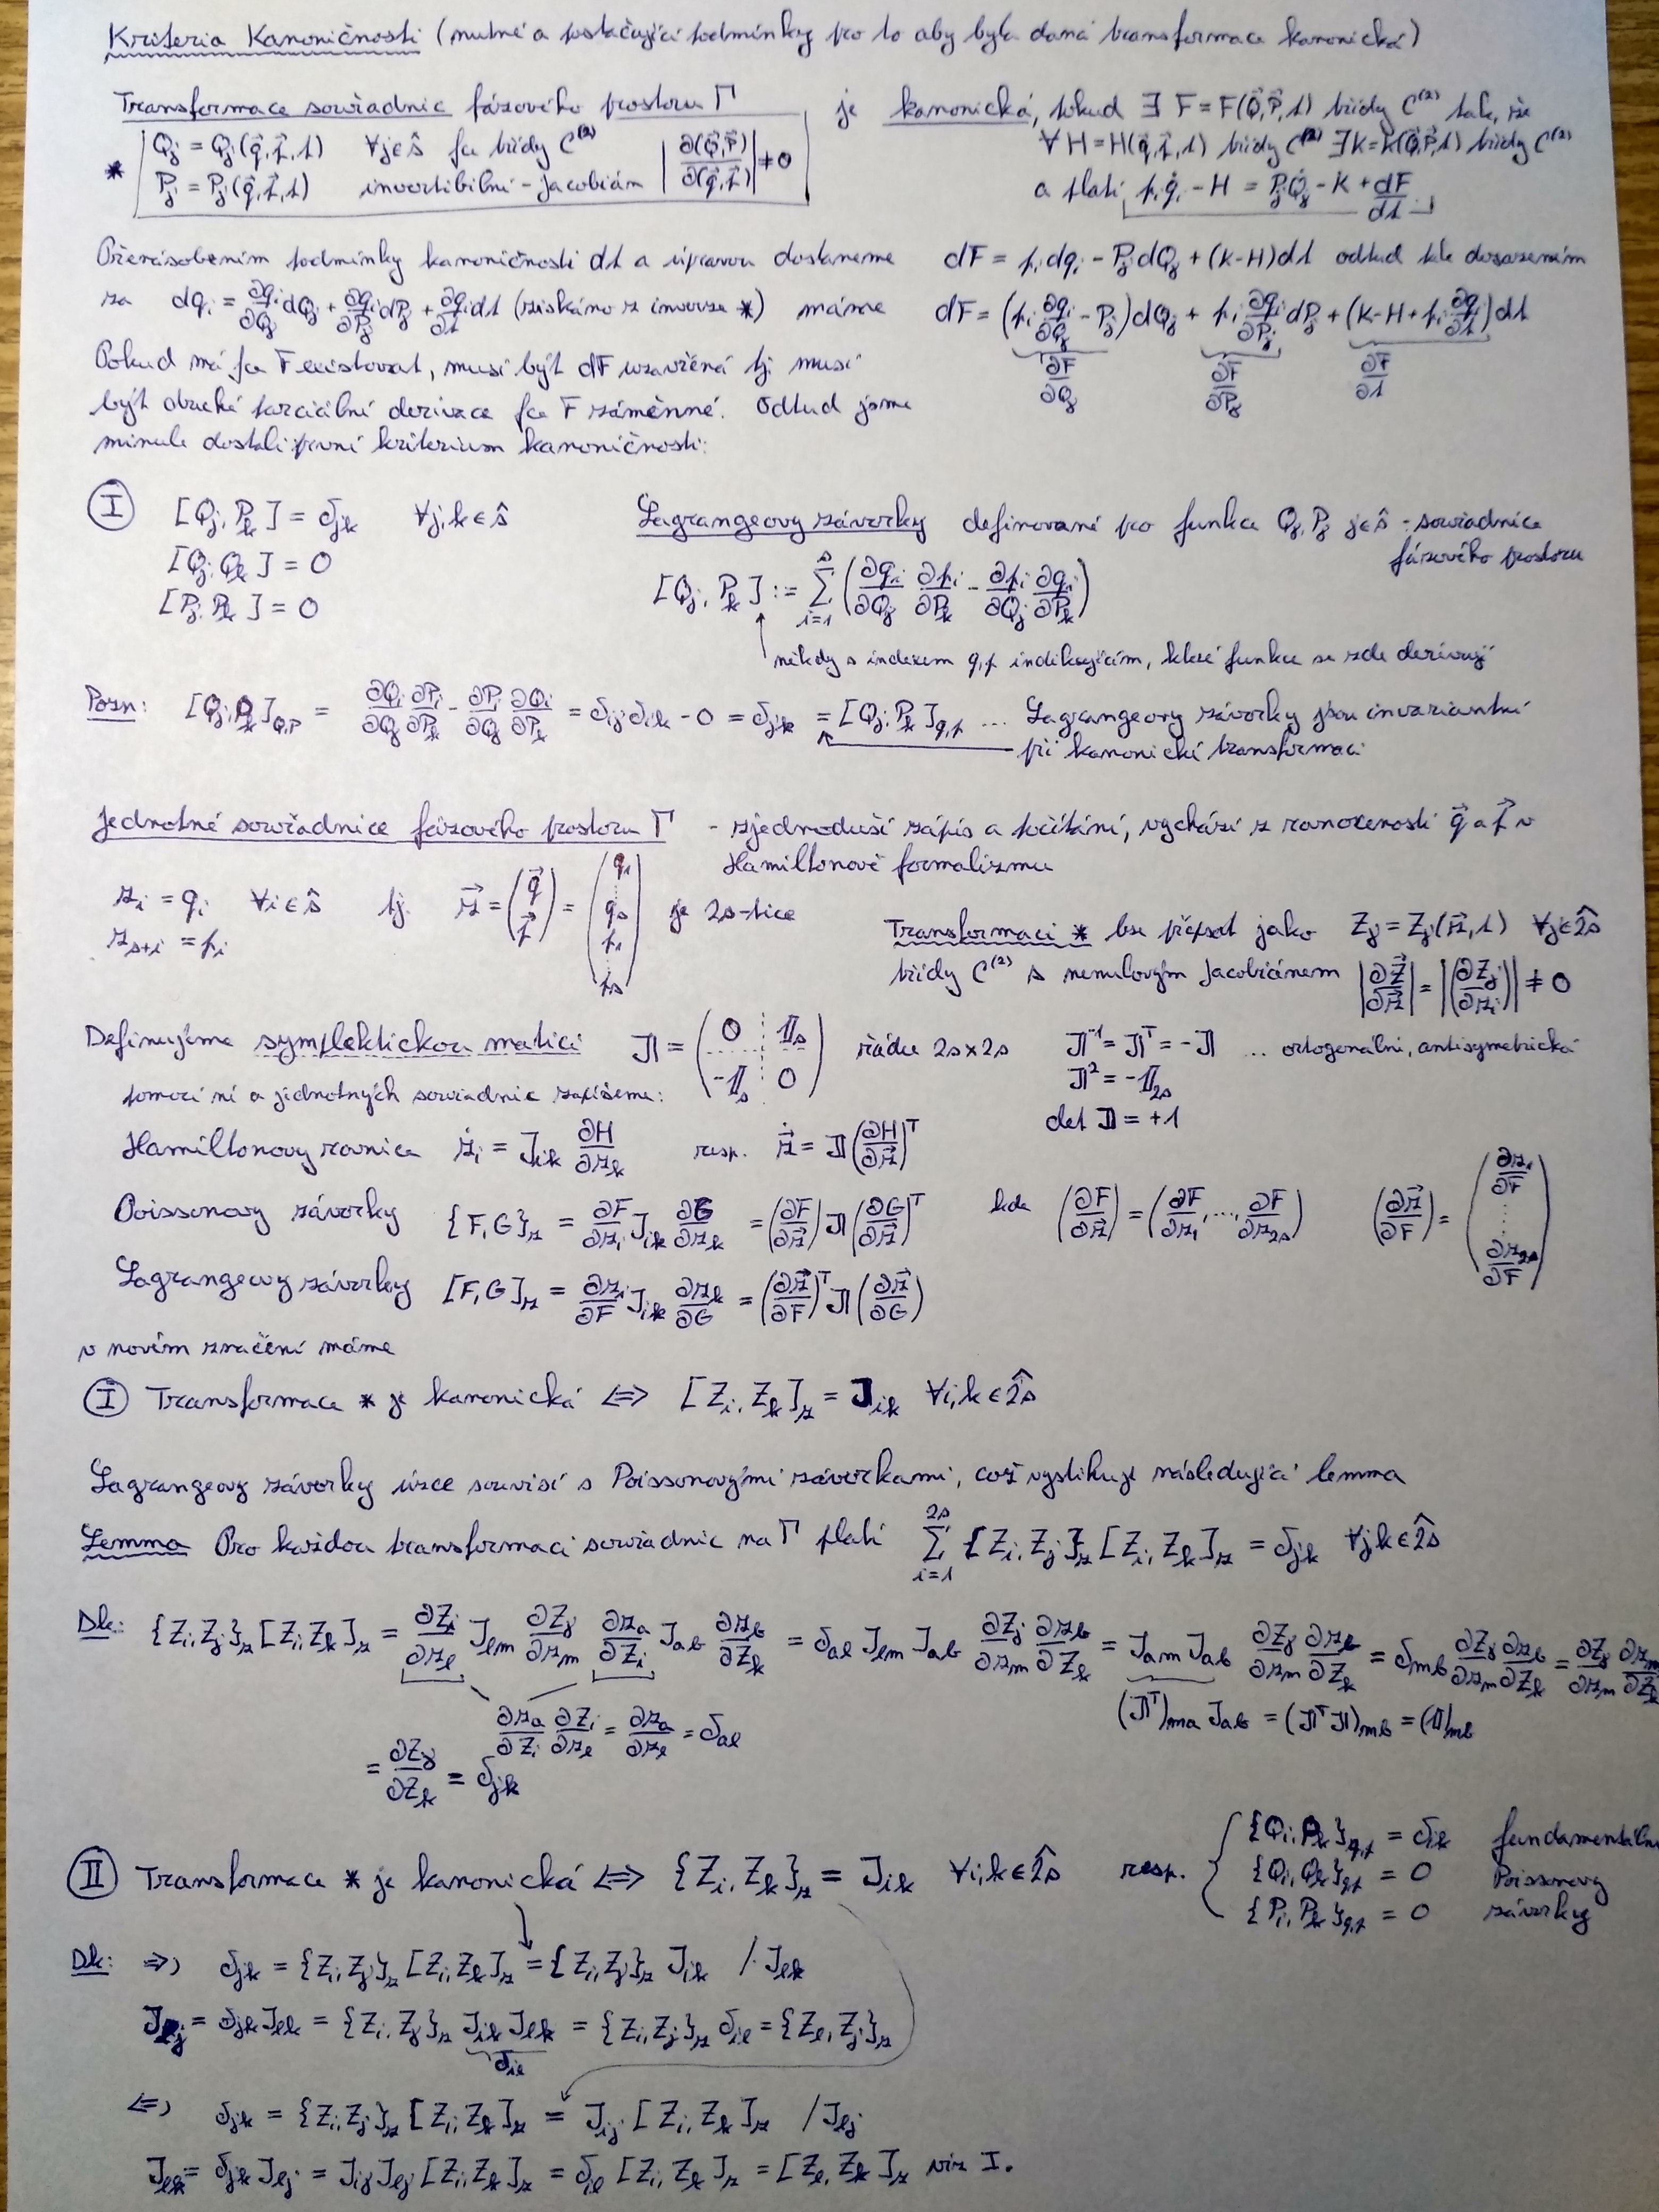 Kriteria Kanoničnosti (nutné a postačující podmínky pro to aby byla daná transformace kanonická)
Transformace souřadnic fázového prostoru Γ je kanonická, pokud ∃ F = F(Q⃗,P⃗,t) třídy C⁽²⁾ tak, že
* Qⱼ = Qⱼ(q⃗,p⃗,t) ∀j∈ŝ fce třídy C⁽²⁾ |∂(Q⃗,P⃗)/∂(q⃗,p⃗)| ≠ 0 ∀ H = H(q⃗,p⃗,t) třídy C⁽²⁾ ∃ K = K(Q⃗,P⃗,t) třídy C⁽²⁾
Pⱼ = Pⱼ(q⃗,p⃗,t) invertibilní - jacobián a platí pᵢq̇ᵢ - H = PⱼQ̇ⱼ - K + dF/dt
Přenásobením podmínky kanoničnosti dt a úpravou dostaneme dF = pᵢdqᵢ - PⱼdQⱼ + (K-H)dt odtud kde dosazením
za dqᵢ = ∂qᵢ/∂Qⱼ dQⱼ + ∂qᵢ/∂Pⱼ dPⱼ + ∂qᵢ/∂t dt (získáno z inverze *) máme dF = (pᵢ ∂qᵢ/∂Qⱼ - Pⱼ)dQⱼ + pᵢ ∂qᵢ/∂Pⱼ dPⱼ + (K-H+pᵢ ∂qᵢ/∂t)dt
∂F/∂Qⱼ ∂F/∂Pⱼ ∂F/∂t
Pokud má fce F existovat, musí být dF uzavřená tj. musí
být druhé parciální derivace fce F záměnné. Odtud jsme
minule dostali první kriterium kanoničnosti:
Ⅰ [Qⱼ,Pₖ] = δⱼₖ ∀j,k∈ŝ Lagrangeovy závorky definované pro funkce Qⱼ,Pⱼ j∈ŝ - souřadnice
fázového prostoru
[Qⱼ,Qₖ] = 0
[Pⱼ,Pₖ] = 0 [Qⱼ,Pₖ] := Σᵢ₌₁ˢ (∂qᵢ/∂Qⱼ ∂pᵢ/∂Pₖ - ∂pᵢ/∂Qⱼ ∂qᵢ/∂Pₖ)
někdy s indexem q,p indikujícím, které funkce se zde derivují
Pozn: [Qⱼ,Pₖ]_Q,P = ∂Qᵢ/∂Qⱼ ∂Pᵢ/∂Pₖ - ∂Pᵢ/∂Qⱼ ∂Qᵢ/∂Pₖ = δᵢⱼδᵢₖ - 0 = δⱼₖ = [Qⱼ,Pₖ]_q,p ... Lagrangeovy závorky jsou invariantní
při kanonické transformaci
Jednotné souřadnice fázového prostoru Γ - zjednoduší zápis a počítání, vychází z rovnocennosti q⃗ a p⃗ v
Hamiltonově formalizmu
zᵢ = qᵢ ∀i∈ŝ tj. z⃗ = (q⃗ p⃗) = (q₁ ⋮ qₛ p₁ ⋮ pₛ) je 2s-tice
zₛ₊ᵢ = pᵢ
Transformaci * lze přepsat jako Zⱼ = Zⱼ(z⃗,t) ∀j∈2ŝ
třídy C⁽²⁾ s nenulovým jacobiánem |∂Z⃗/∂z⃗| = |(∂Zⱼ/∂zᵢ)| ≠ 0
Definujeme symplektickou matici 𝕁 = (0 𝟙ₛ -𝟙ₛ 0) řádu 2s×2s 𝕁⁻¹ = 𝕁ᵀ = -𝕁 ... ortogonální, antisymetrická
𝕁² = -𝟙₂ₛ
pomocí ní a jednotných souřadnic zapíšeme: det 𝕁 = +1
Hamiltonovy rovnice żᵢ = Jᵢₖ ∂H/∂zₖ resp. z⃗̇ = 𝕁(∂H/∂z⃗)ᵀ
Poissonovy závorky {F,G}_z = ∂F/∂zᵢ Jᵢₖ ∂G/∂zₖ = (∂F/∂z⃗)𝕁(∂G/∂z⃗)ᵀ kde (∂F/∂z⃗) = (∂F/∂z₁,...,∂F/∂z₂ₛ) (∂z⃗/∂F) = (∂z₁/∂F ⋮ ∂z₂ₛ/∂F)
Lagrangeovy závorky [F,G]_z = ∂zᵢ/∂F Jᵢₖ ∂zₖ/∂G = (∂z⃗/∂F)ᵀ𝕁(∂z⃗/∂G)
v novém značení máme
Ⅰ Transformace * je kanonická ⟺ [Zᵢ,Zₖ]_z = Jᵢₖ ∀i,k∈2ŝ
Lagrangeovy závorky úzce souvisí s Poissonovými závorkami, což vystihuje následující lemma
Lemma Pro každou transformaci souřadnic na Γ platí Σᵢ₌₁²ˢ {Zᵢ,Zⱼ}_z [Zᵢ,Zₖ]_z = δⱼₖ ∀jk∈2ŝ
Dk: {Zᵢ,Zⱼ}_z [Zᵢ,Zₖ]_z = ∂Zᵢ/∂zₗ Jₗₘ ∂Zⱼ/∂zₘ ∂zₐ/∂Zᵢ J_ab ∂z_b/∂Zₖ = δₐₗ Jₗₘ J_ab ∂Zⱼ/∂zₘ ∂z_b/∂Zₖ = Jₐₘ J_ab ∂Zⱼ/∂zₘ ∂z_b/∂Zₖ = δ_mb ∂Zⱼ/∂zₘ ∂z_b/∂Zₖ = ∂Zⱼ/∂zₘ ∂zₘ/∂Zₖ
∂zₐ/∂Zᵢ ∂Zᵢ/∂zₗ = ∂zₐ/∂zₗ = δₐₗ (𝕁ᵀ)ₘₐ J_ab = (𝕁ᵀ𝕁)_mb = (𝟙)_mb
= ∂Zⱼ/∂Zₖ = δⱼₖ
Ⅱ Transformace * je kanonická ⟺ {Zᵢ,Zₖ}_z = Jᵢₖ ∀i,k∈2ŝ resp. { {Qᵢ,Pₖ}_q,p = δᵢₖ fundamentální
{Qᵢ,Qₖ}_q,p = 0 Poissonovy
{Pᵢ,Pₖ}_q,p = 0 závorky
Dk: ⇒) δⱼₖ = {Zᵢ,Zⱼ}_z [Zᵢ,Zₖ]_z = {Zᵢ,Zⱼ}_z Jᵢₖ /·Jₗₖ
Jₗⱼ = δⱼₖJₗₖ = {Zᵢ,Zⱼ}_z JᵢₖJₗₖ = {Zᵢ,Zⱼ}_z δᵢₗ = {Zₗ,Zⱼ}_z
δᵢₗ
⇐) δⱼₖ = {Zᵢ,Zⱼ}_z [Zᵢ,Zₖ]_z = Jᵢⱼ [Zᵢ,Zₖ]_z /Jₗⱼ
Jₗₖ = δⱼₖJₗⱼ = JᵢⱼJₗⱼ [Zᵢ,Zₖ]_z = δᵢₗ [Zᵢ,Zₖ]_z = [Zₗ,Zₖ]_z viz I.